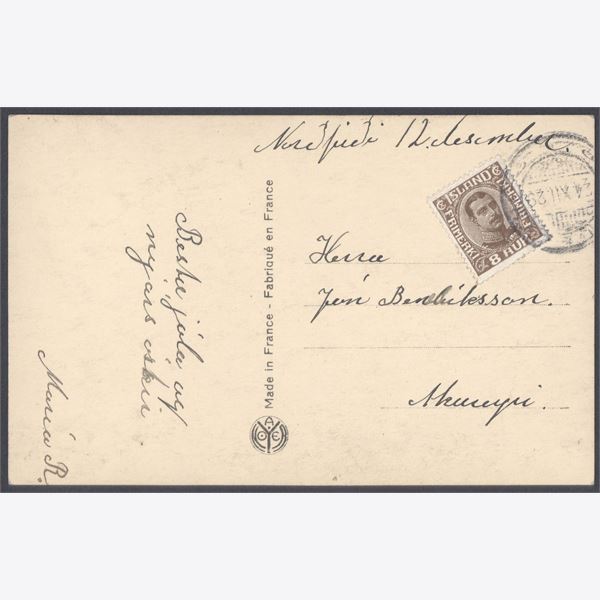 Norðfirði 12. desember.
Bestu jóla og
nýárs óskir
María R.
Made in France - Fabriqué en France
ÍSLAND
FRÍMERKI
8 AUR
24.XII.29
Herra
Jón Benediktsson.
Akureyri.